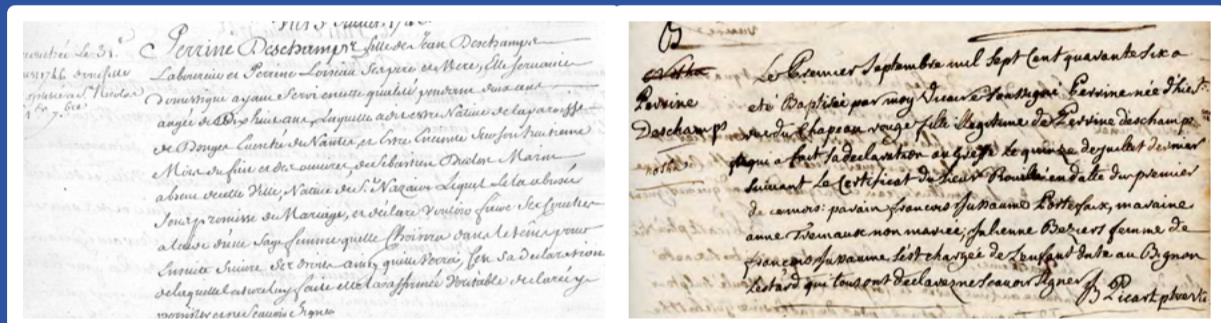 accouchée Le 31e.
aoust 1746 d'une fille
baptisée a St. Nicolas
Perrine Deschamps fille de Jean Deschamps
Laboureur et Perrine Loiseau Ses père et Mere, Elle servante
Domestique ayant Servi en cette qualité pendant deux ans
aagée de Dix huit ans, Laquelle a dit estre Native de la paroisse
de Donges Eveché de Nantes, et Estre Enceinte de
Mois du fait et des œuvres de Sebastien Marin
absent de cette Ville, Natif de St. Nazaire Lequel de la abusée
Sous promesse de Mariage, et declaré Vouloir faire Ses Couches
a l'aide d'une Sage femme quelle Choisira dans le tems pour
Ensuite Suivre Ses droits ainsy quelle Voira, Est sa Declaration
de laquelle Lecture luy faite elle l'a affirmée Veritable declaré y
persister et ne Scavoir Signer
B
Notha
Perrine
Deschamps
notha
Le Premier Septembre mil Sept Cent quarante Six a
eté Baptisée par moy Vicaire Soussigné Perrine née d'hier
rue du Chapeau rouge fille illegitime de Perrine deschamps
qui a fait sa declaration au Greffe le quinze de juillet dernier
Suivant le Certificat du Sieur en datte du premier
de ce mois: parain françois Jussaume Portefaix, maraine
anne non mariée, Julienne Beziers femme de
françois Jussaume s'est chargée de l'enfant au Bignon
Lestard qui tous ont declaré ne scavoir Signer
B Picart ptre vic